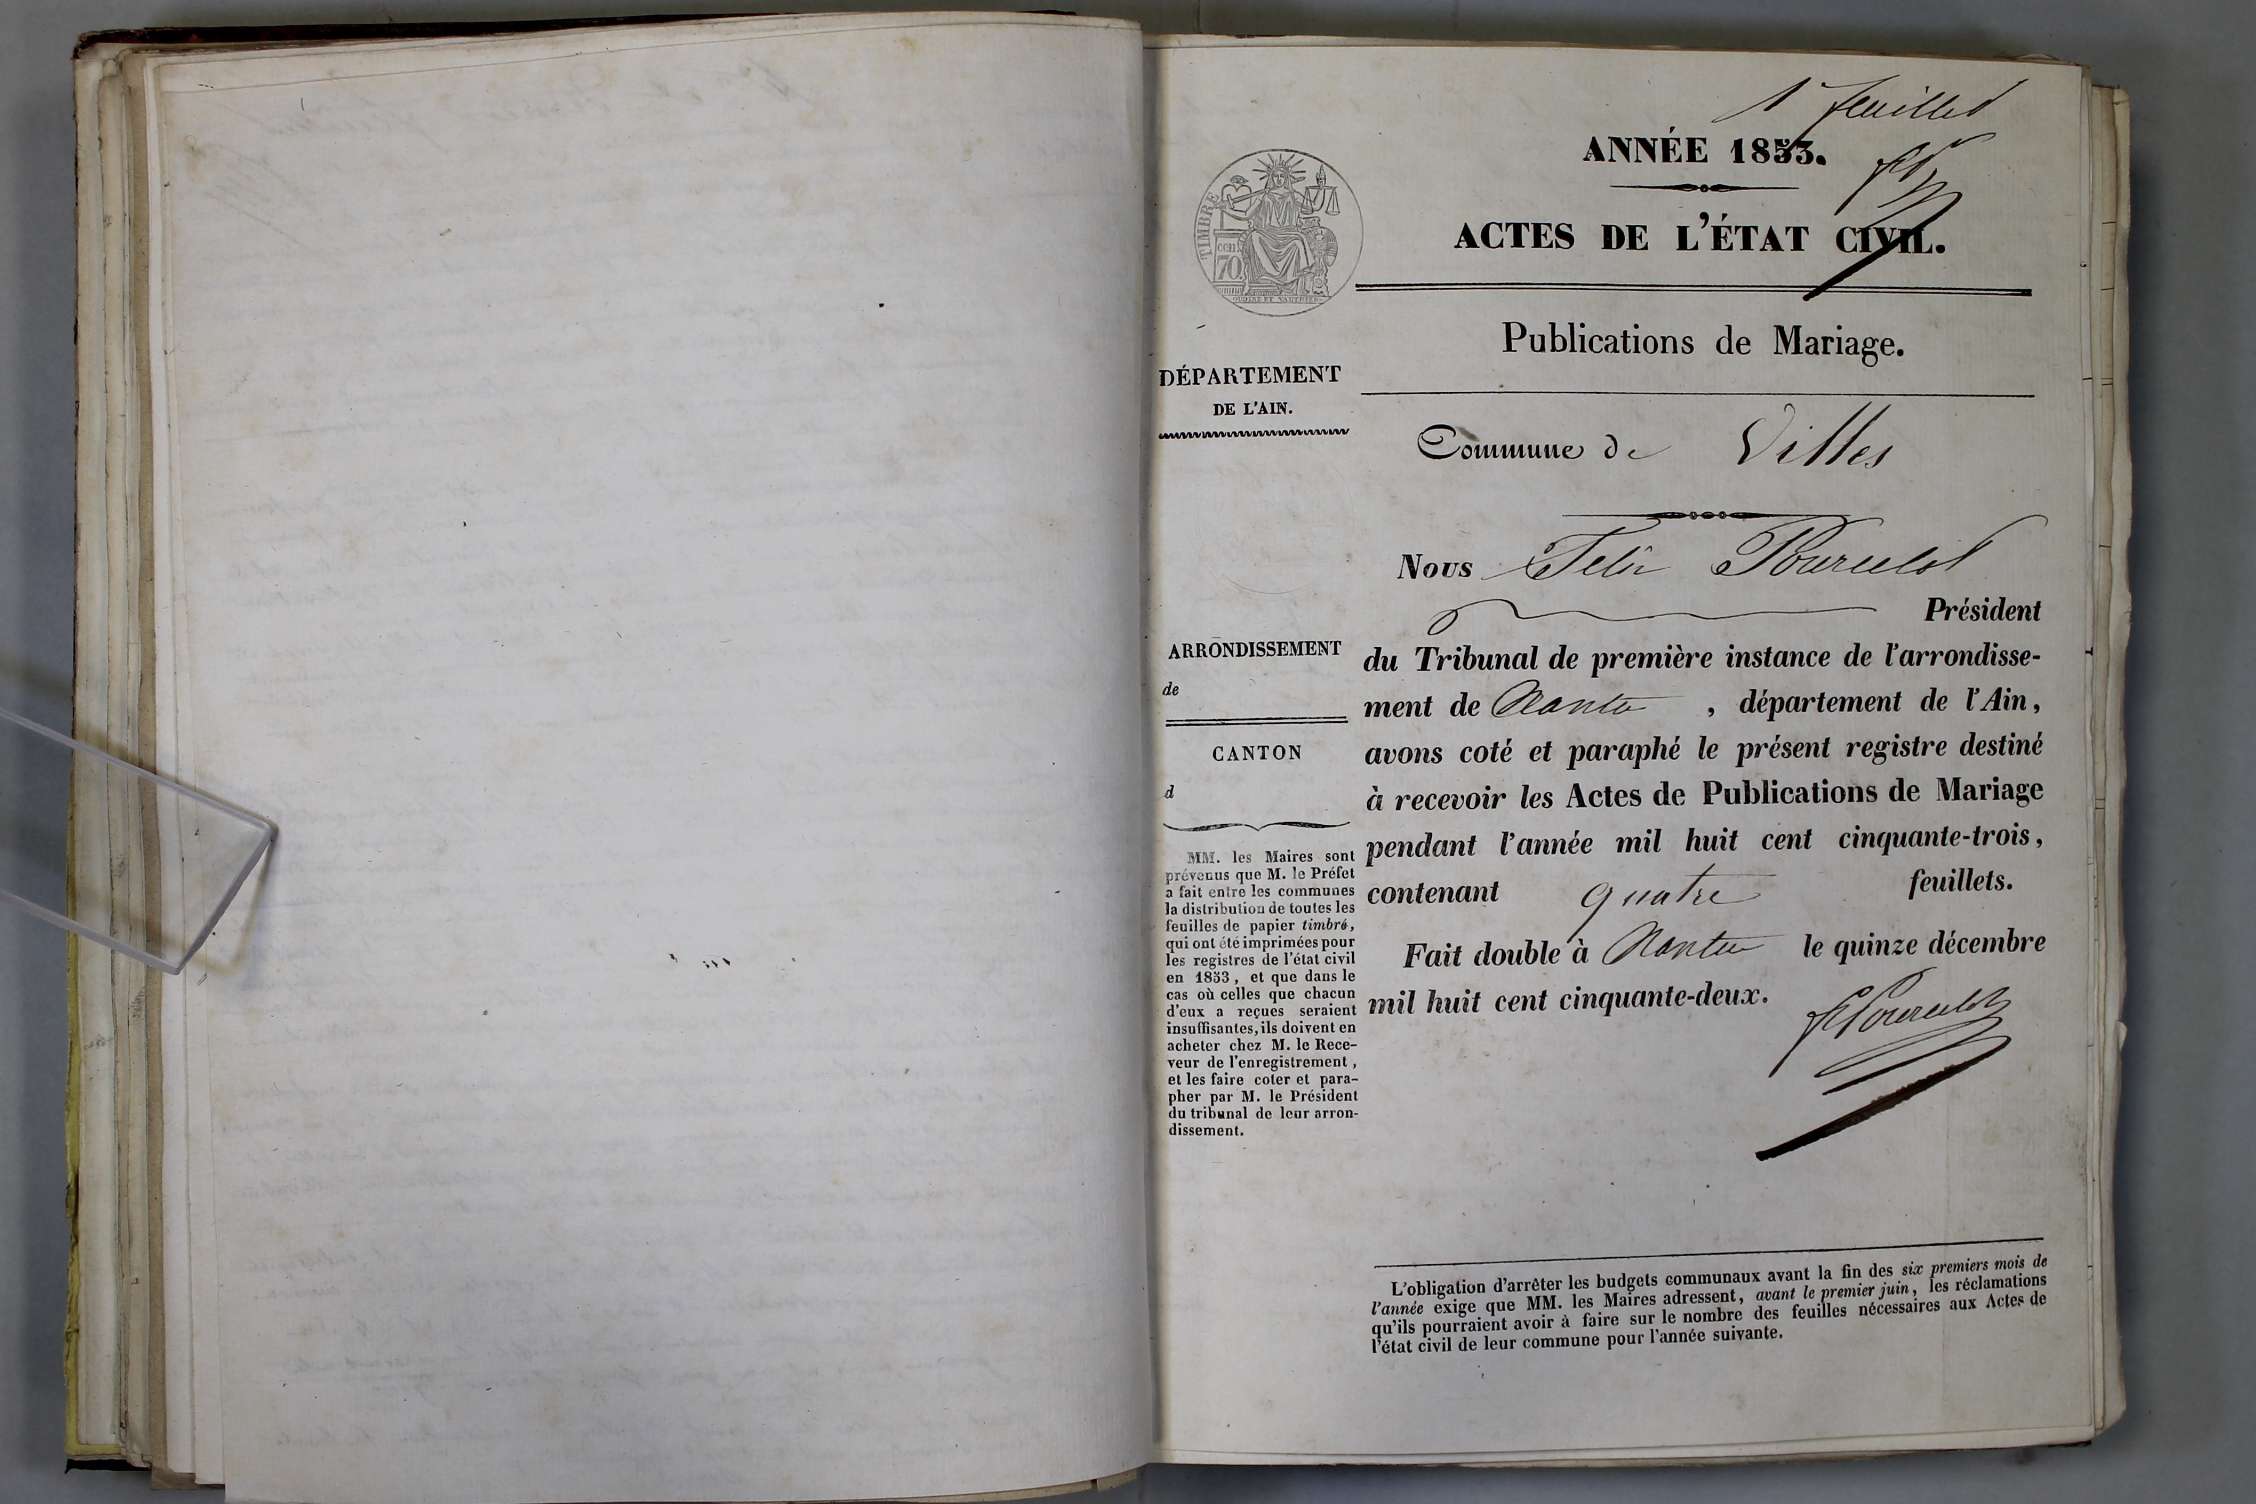 1 feuillet
ANNÉE 1853.
ACTES DE L'ÉTAT CIVIL.
TIMBRE
70
Publications de Mariage.
DÉPARTEMENT
DE L'AIN.
Commune de Villes
Nous Felix Pourcelot
Président
du Tribunal de première instance de l'arrondisse-
ment de Nantua, département de l'Ain,
avons coté et paraphé le présent registre destiné
à recevoir les Actes de Publications de Mariage
pendant l'année mil huit cent cinquante-trois,
contenant quatre feuillets.
Fait double à Nantua le quinze décembre
mil huit cent cinquante-deux.
ARRONDISSEMENT
de
CANTON
d
MM. les Maires sont
prévenus que M. le Préfet
a fait entre les communes
la distribution de toutes les
feuilles de papier timbré,
qui ont été imprimées pour
les registres de l'état civil
en 1853, et que dans le
cas où celles que chacun
d'eux a reçues seraient
insuffisantes, ils doivent en
acheter chez M. le Rece-
veur de l'enregistrement,
et les faire coter et para-
pher par M. le Président
du tribunal de leur arron-
dissement.
L'obligation d'arrêter les budgets communaux avant la fin des six premiers mois de
l'année exige que MM. les Maires adressent, avant le premier juin, les réclamations
qu'ils pourraient avoir à faire sur le nombre des feuilles nécessaires aux Actes de
l'état civil de leur commune pour l'année suivante.